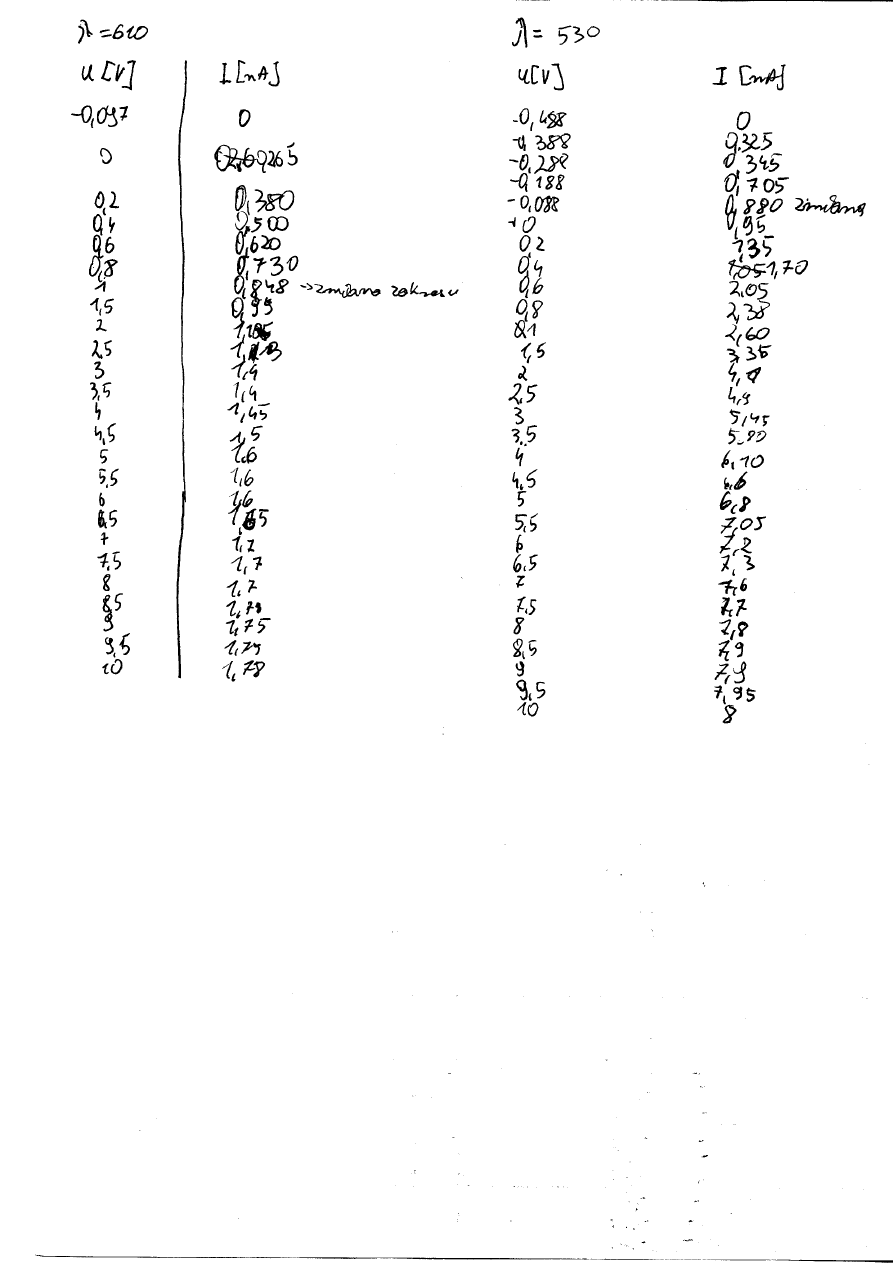 λ = 610
U [V] I [nA]
-0,097 0
0 0,265
0,2 0,380
0,4 0,500
0,6 0,620
0,8 0,730
1 0,848 → zmiana zakresu
1,5 0,95
2
2,5
3 1,4
3,5 1,4
4 1,45
4,5 1,5
5 1,6
5,5 1,6
6 1,6
6,5 1,65
7 1,7
7,5 1,7
8 1,7
8,5
9 1,75
9,5 1,75
10 1,78
λ = 530
U [V] I [nA]
-0,488 0
-0,388 0,325
-0,288 0,345
-0,188 0,705
-0,088 0,880 zmiana
0 0,95
0,2 1,35
0,4 1,70
0,6 2,05
0,8 2,38
1 2,60
1,5 3,35
2
2,5 4,9
3 5,45
3,5
4 6,10
4,5 6,6
5 6,8
5,5 7,05
6 7,2
6,5 7,3
7 7,6
7,5 7,7
8 7,8
8,5 7,9
9 7,9
9,5 7,95
10 8